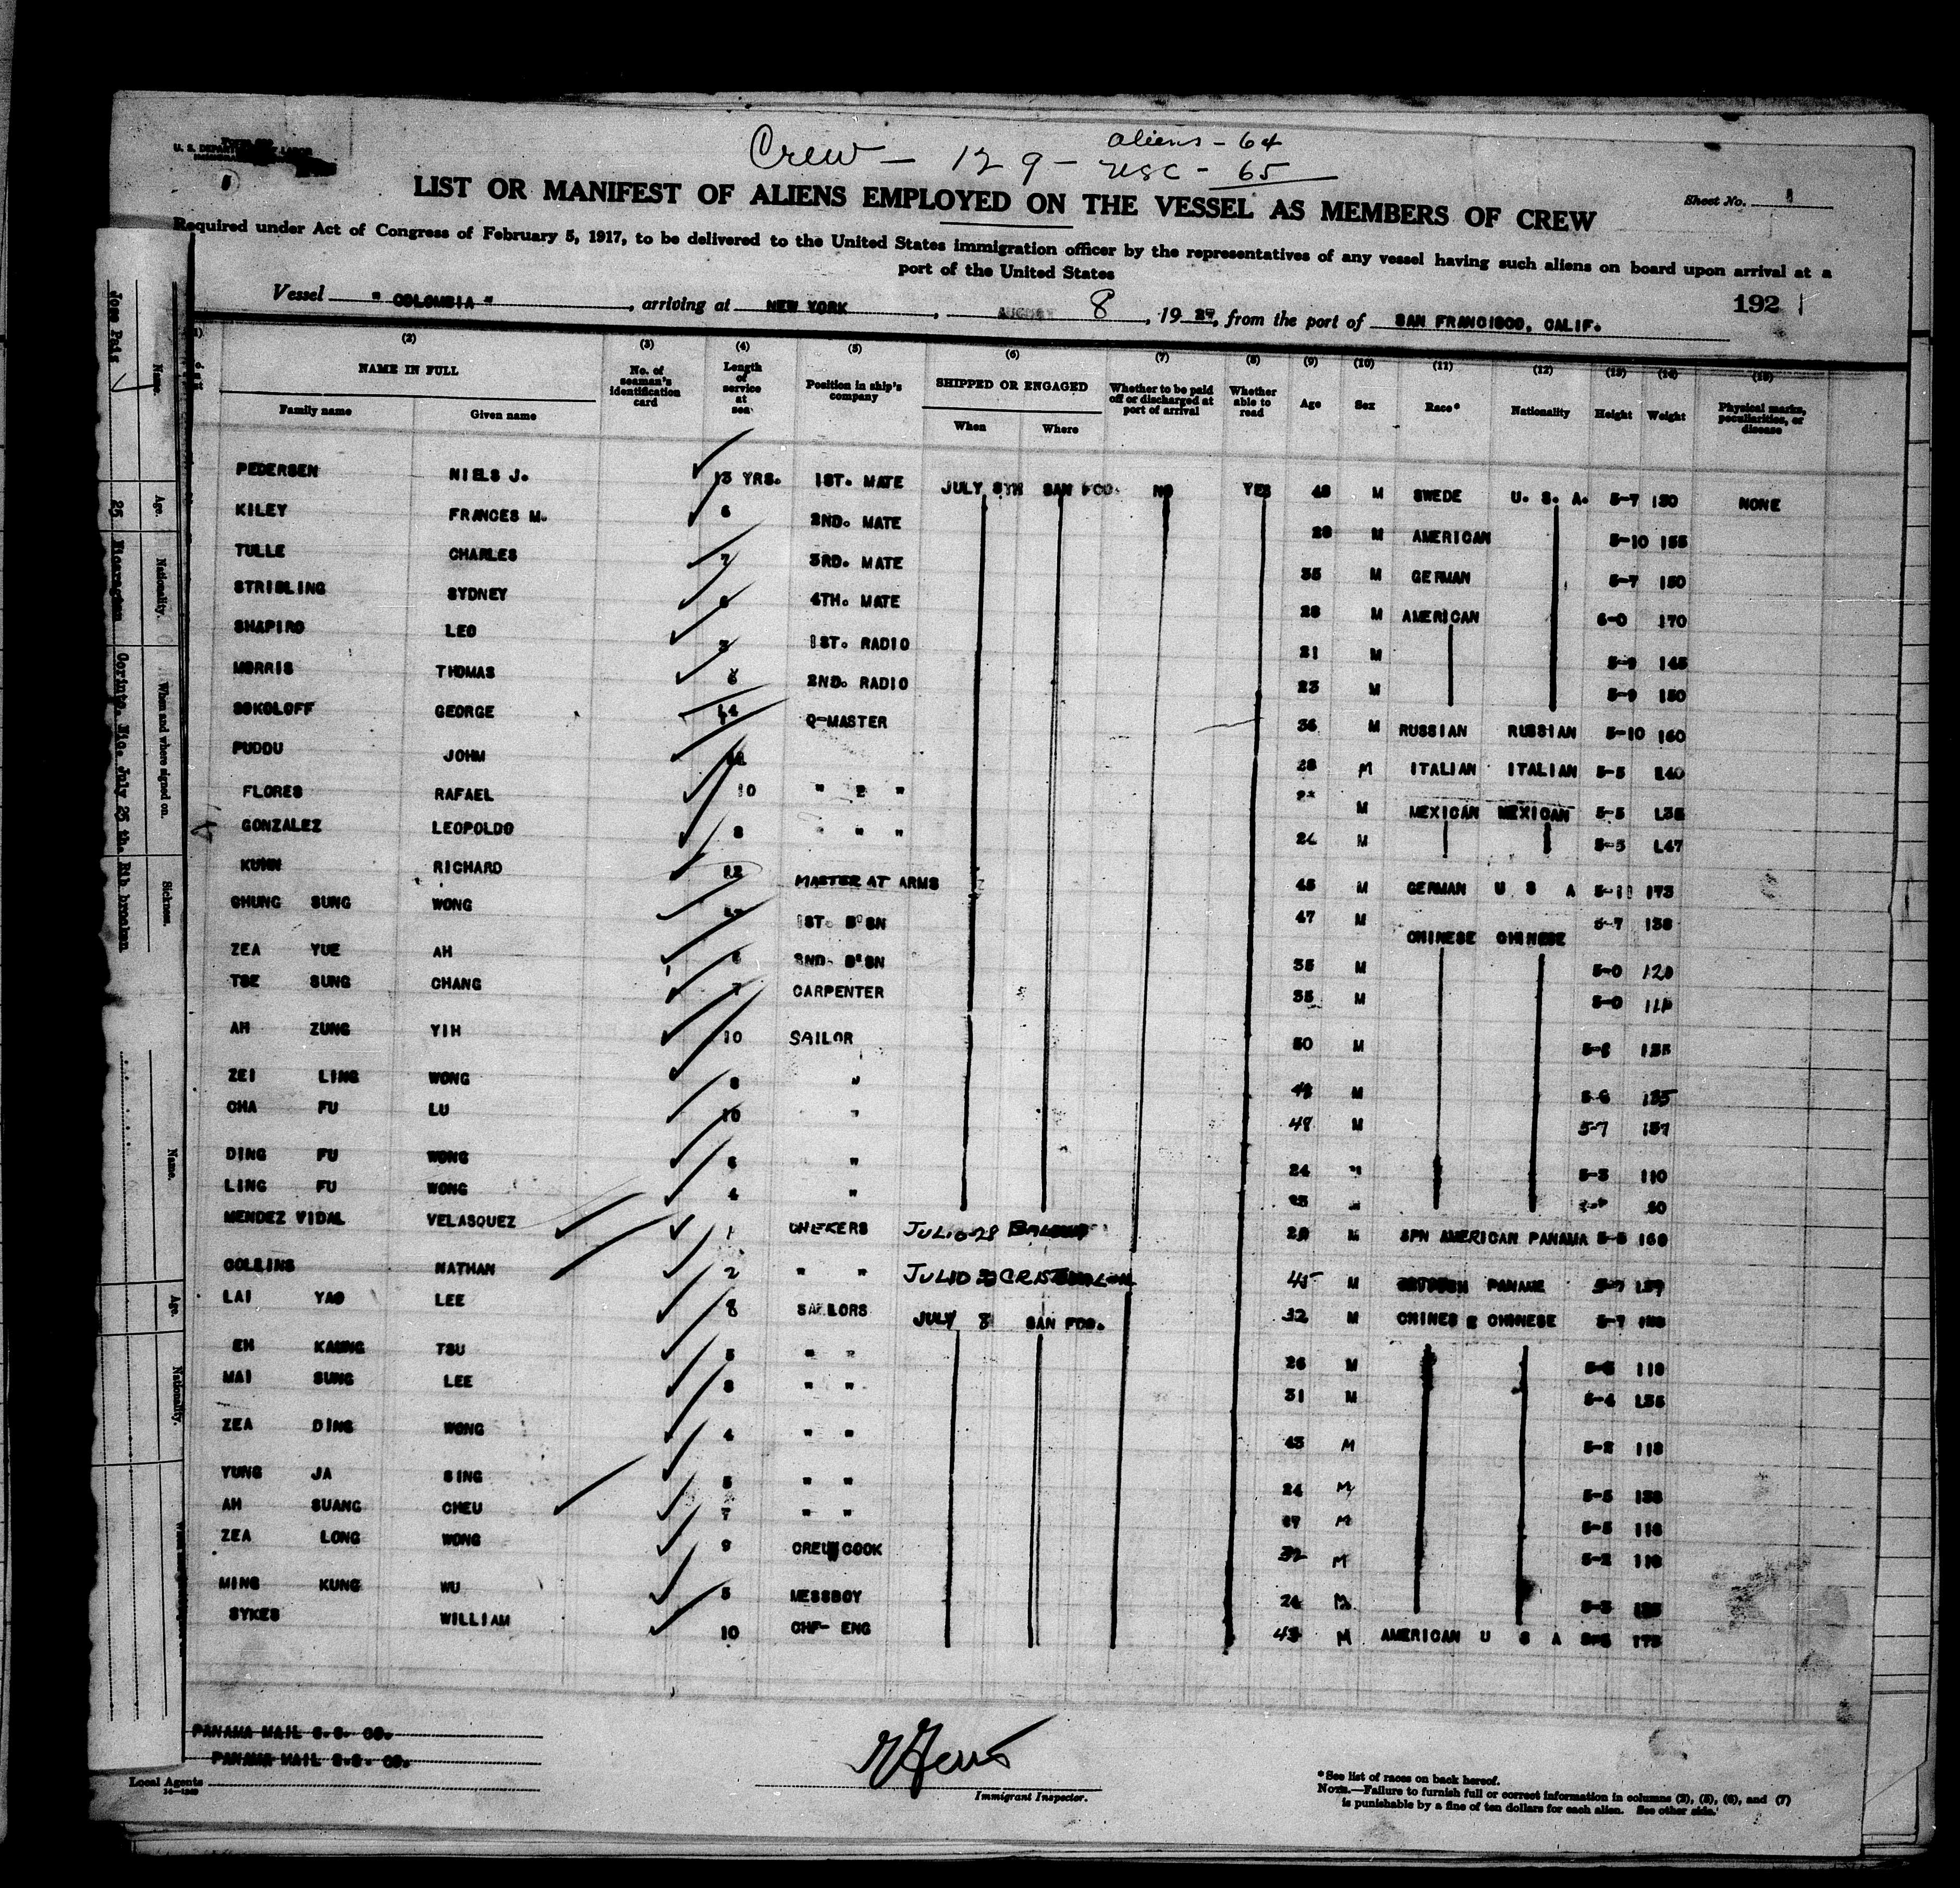 Crew - 129 - aliens - 64
USC - 65
U. S. DEPARTMENT OF LABOR
LIST OR MANIFEST OF ALIENS EMPLOYED ON THE VESSEL AS MEMBERS OF CREW
Sheet No. 1
Required under Act of Congress of February 5, 1917, to be delivered to the United States immigration officer by the representatives of any vessel having such aliens on board upon arrival at a
port of the United States
Vessel "COLOMBIA", arriving at NEW YORK, AUGUST 8, 1927, from the port of SAN FRANCISCO, CALIF.
192
(2) (3) (4) (5) (6) (7) (8) (9) (10) (11) (12) (13) (14) (15)
NAME IN FULL
Family name Given name
No. of seaman's identification card
Length of service at sea
Position in ship's company
SHIPPED OR ENGAGED
When Where
Whether to be paid off or discharged at port of arrival
Whether able to read
Age Sex Race* Nationality Height Weight
Physical marks, peculiarities, or disease
PEDERSEN NIELS J. 13 YRS. 1ST. MATE JULY 8TH SAN FCO. NO YES 48 M SWEDE U. S. A. 5-7 180 NONE
KILEY FRANCES M. 6 2ND. MATE 28 M AMERICAN 5-10 155
TULLE CHARLES 7 3RD. MATE 35 M GERMAN 5-7 150
STRIBLING SYDNEY 4TH. MATE 28 M AMERICAN 6-0 170
SHAPIRO LEO 3 1ST. RADIO 21 M 5-9 145
MORRIS THOMAS 6 2ND. RADIO 23 M 5-9 150
SOKOLOFF GEORGE 14 Q-MASTER 36 M RUSSIAN RUSSIAN 5-10 160
PUDDU JOHM 28 M ITALIAN ITALIAN 5-5 140
FLORES RAFAEL 10 " " M MEXICAN MEXICAN 5-5 135
GONZALEZ LEOPOLDO 8 " " 24 M 5-5 147
KUHN RICHARD 12 MASTER AT ARMS 45 M GERMAN U S A 5-11 173
CHUNG SUNG WONG 1ST. B'SN 47 M CHINESE CHINESE 5-7 138
ZEA YUE AH 6 2ND. B'SN 35 M 5-0 120
TSE SUNG CHANG 7 CARPENTER 35 M 5-0
AH ZUNG YIH 10 SAILOR 50 M 5-6 135
ZEI LING WONG 8 " M 5-6 135
CHA FU LU 10 " 48 M 5-7 157
DING FU WONG " 24 M 5-3 110
LING FU WONG 4 "
MENDEZ VIDAL VELASQUEZ 1 CHEKERS JULIO-28 BALBOA 29 M SPN AMERICAN PANAMA 5-5 160
COLLINS NATHAN 2 " " JULIO CRISTOBAL M
LAI YAO LEE 8 SAILORS JULY 8 SAN FCO. 32 M CHINESE CHINESE 5-7
EH KAUNG TSU 5 " " 26 M 118
MAI SUNG LEE 8 " " 31 M 5-4 135
ZEA DING WONG 4 " " 43 M 5-2 118
YUNG JA SING 5 " " 24 M 5-5 138
AH SUANG CHEU 7 " " M 5-5 118
ZEA LONG WONG 9 CREW COOK 32 M 5-2 118
MING KUNG WU 5 MESSBOY 24 M 5-3
SYKES WILLIAM 10 CHF- ENG 43 M AMERICAN U S A 175
PANAMA MAIL S.S. CO.
PANAMA MAIL S.S. CO.
Local Agents
Immigrant Inspector.
*See list of races on back hereof.
NOTE.—Failure to furnish full or correct information in columns (2), (5), (6), and (7)
is punishable by a fine of ten dollars for each alien. See other side.
Name. Age. Nationality. When and where signed on. Sickness.
Jose Pais 25 Nicaraguan Corinto, Nic. July 25 th. Rib brocken
Name. Age. Nationality.